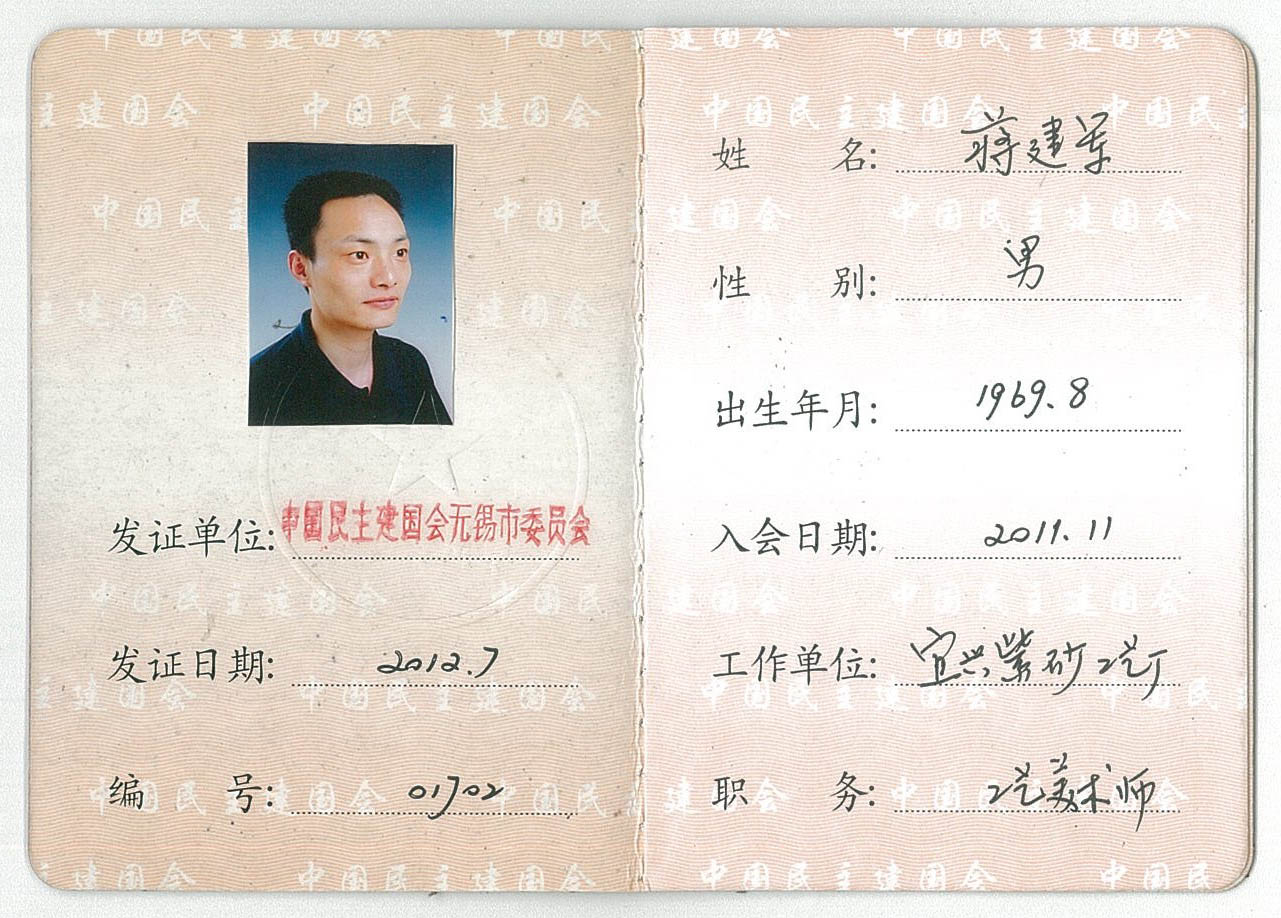 发证单位: 中国民主建国会无锡市委员会
发证日期: 2012.7
编 号: 01702
姓 名: 蒋建军
性 别: 男
出生年月: 1969.8
入会日期: 2011.11
工作单位: 宜兴紫砂工艺厂
职 务: 工艺美术师
中国民主建国会